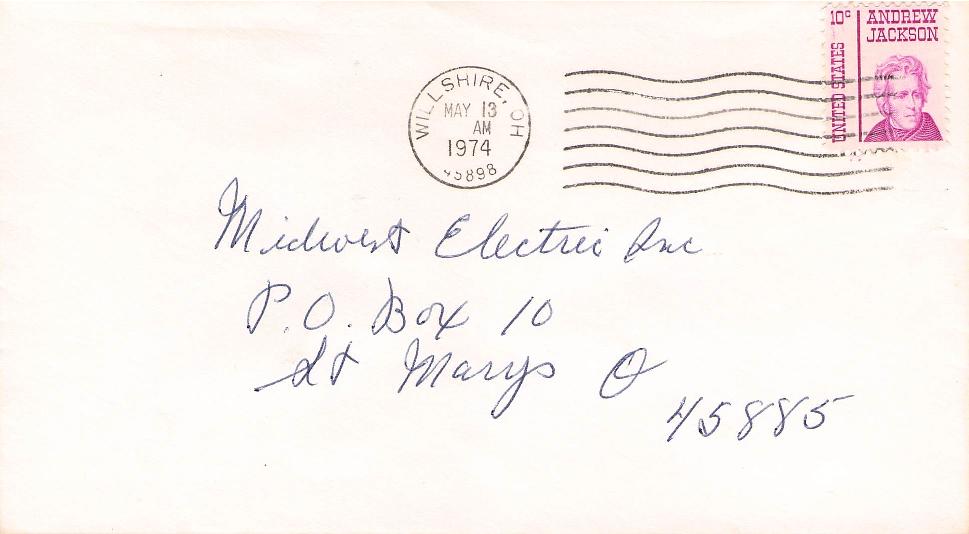 10c
ANDREW
JACKSON
UNITED STATES
WILLSHIRE, OH
MAY 13
AM
1974
45898
Midwest Electric Inc
P.O. Box 10
St Marys O
45885